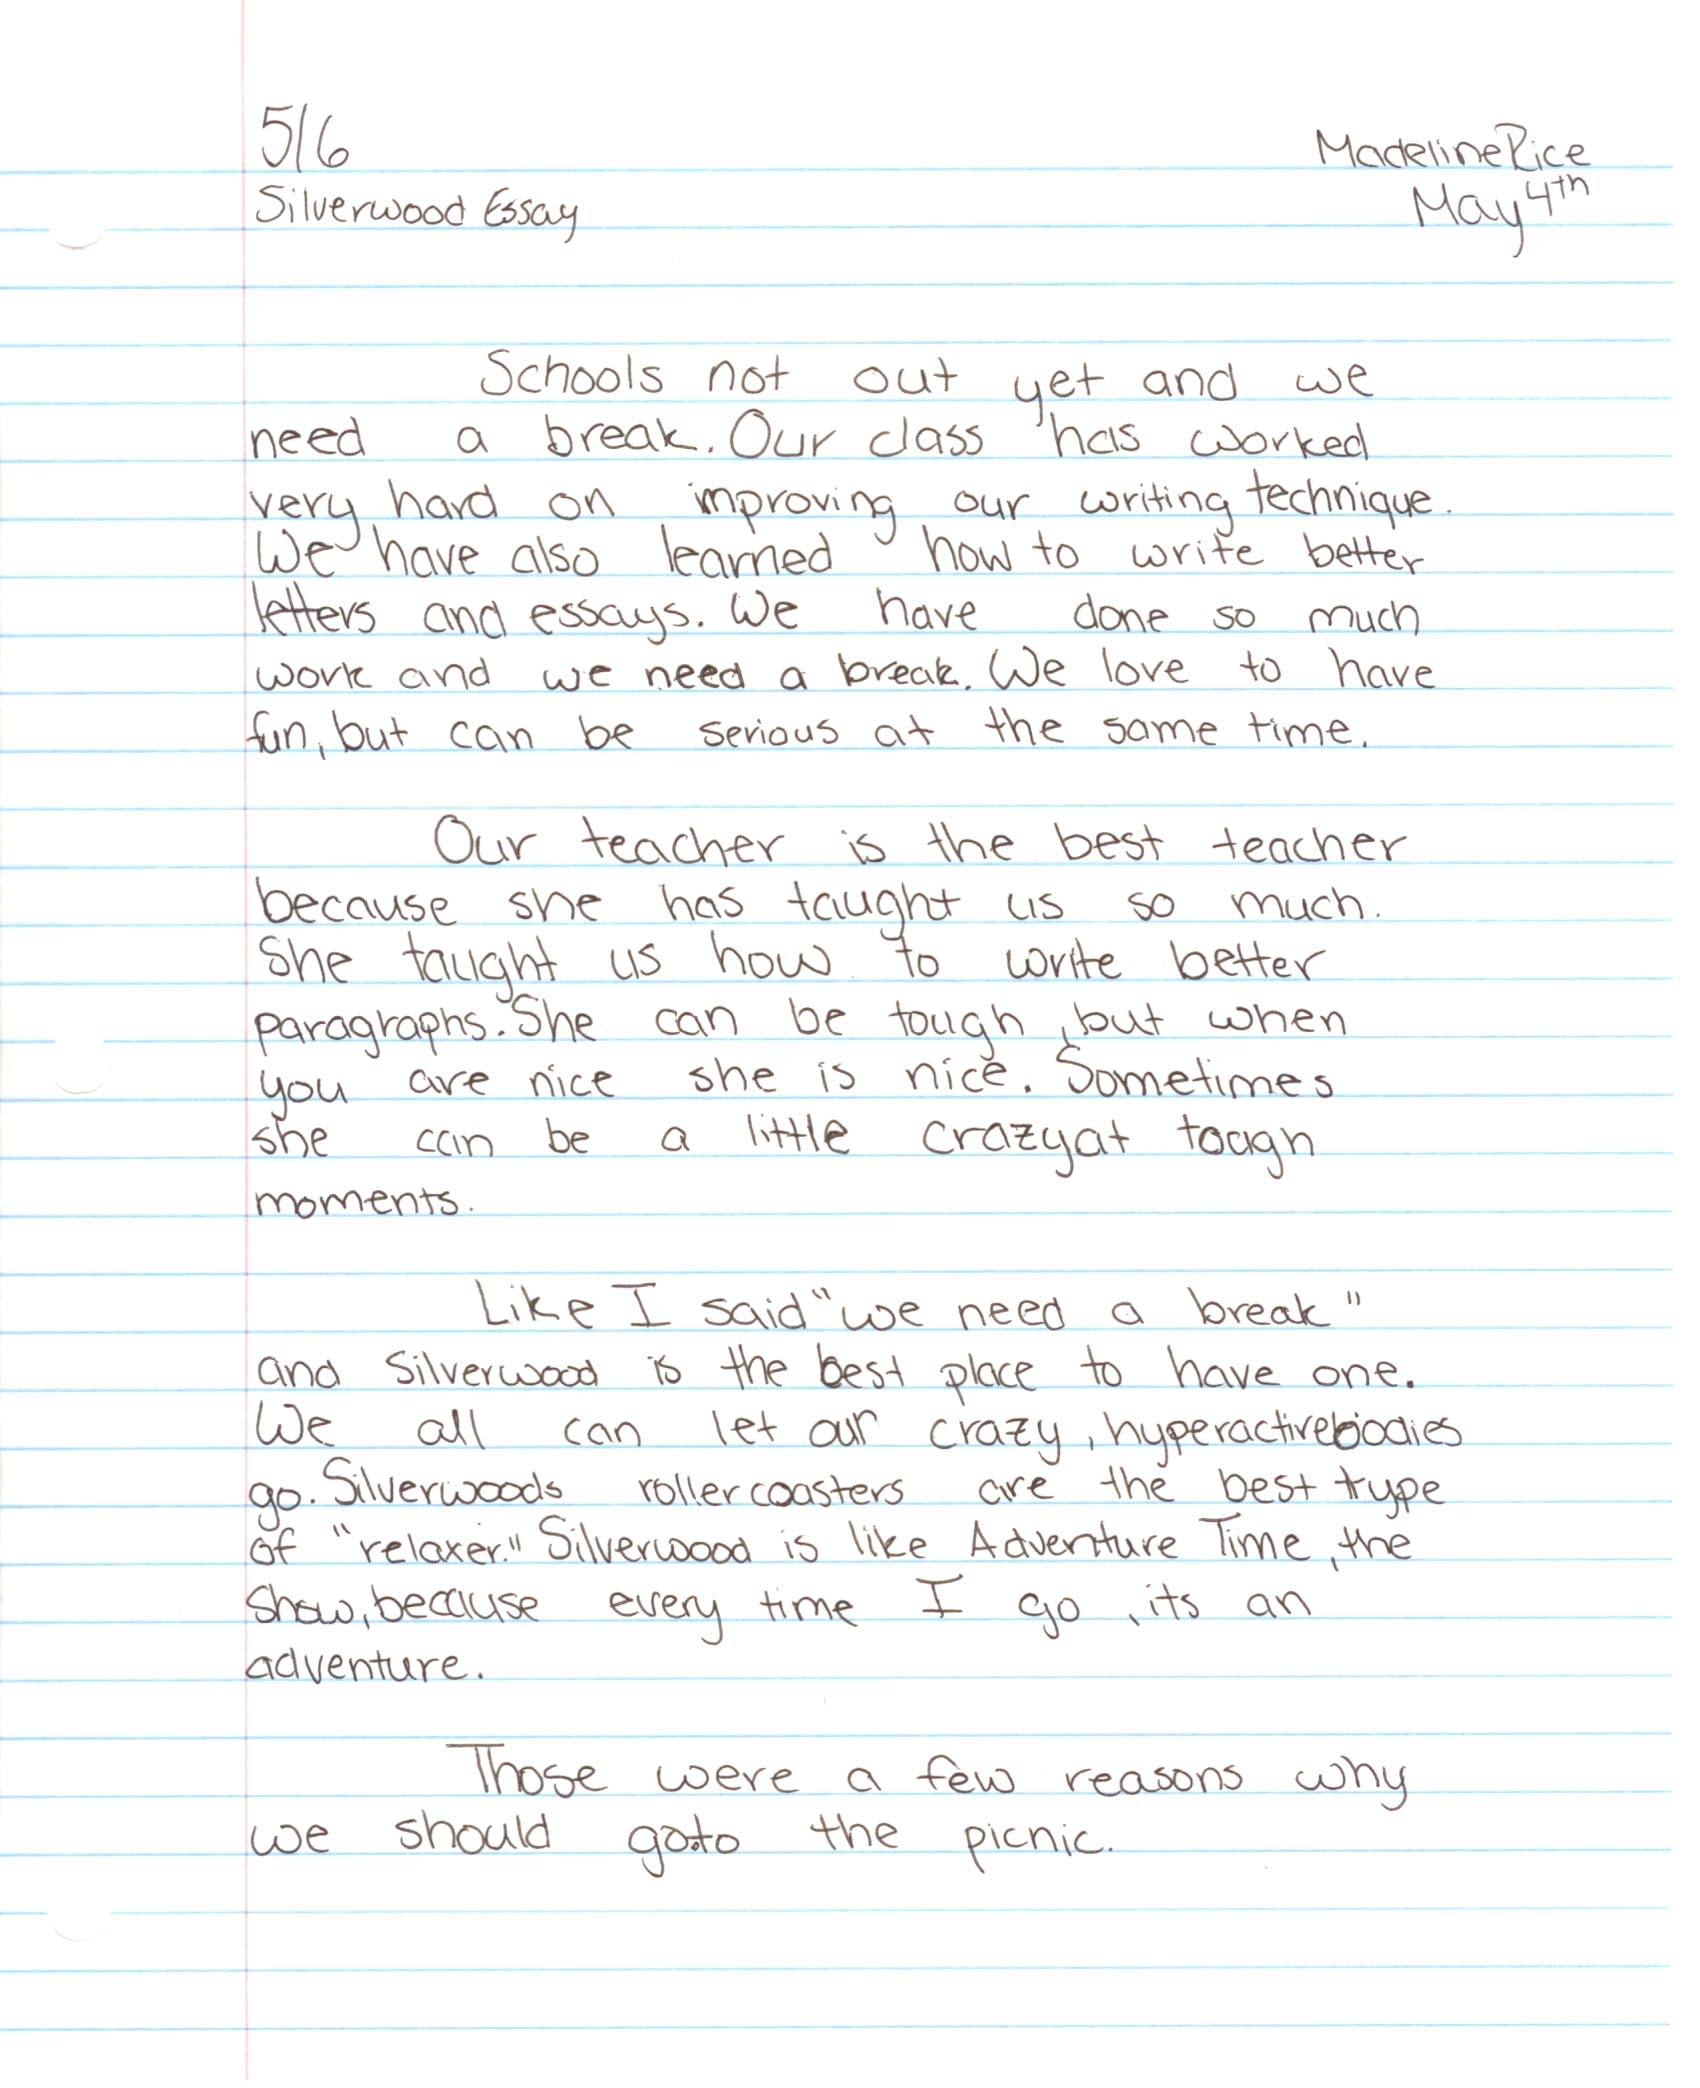 5/6
Madeline Rice
Silverwood Essay
May 4th
Schools not out yet and we
need a break. Our class has worked
very hard on improving our writing technique.
We have also learned how to write better
letters and essays. We have done so much
work and we need a break. We love to have
fun, but can be serious at the same time.
Our teacher is the best teacher
because she has taught us so much.
She taught us how to write better
paragraphs. She can be tough, but when
you are nice she is nice. Sometimes
she can be a little crazy at tough
moments.
Like I said "we need a break"
and Silverwood is the best place to have one.
We all can let our crazy, hyperactive bodies
go. Silverwoods roller coasters are the best type
of "relaxer." Silverwood is like Adventure Time, the
show, because every time I go, its an
adventure.
Those were a few reasons why
we should go to the picnic.